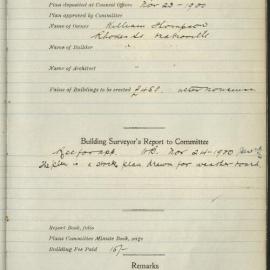 Plan deposited at Council Offices Nov 23 - 1900
Plan approved by Committee
Name of Owner William Thompson
Rhodes St
Name of Builder
Name of Architect
Value of Buildings to be erected £450
Building Surveyor's Report to Committee
Nov 24-1900
The plan is a stock plan drawn for weather board
Report Book, folio
Plans Committee Minute Book, page
Building Fee Paid 15/-
Remarks